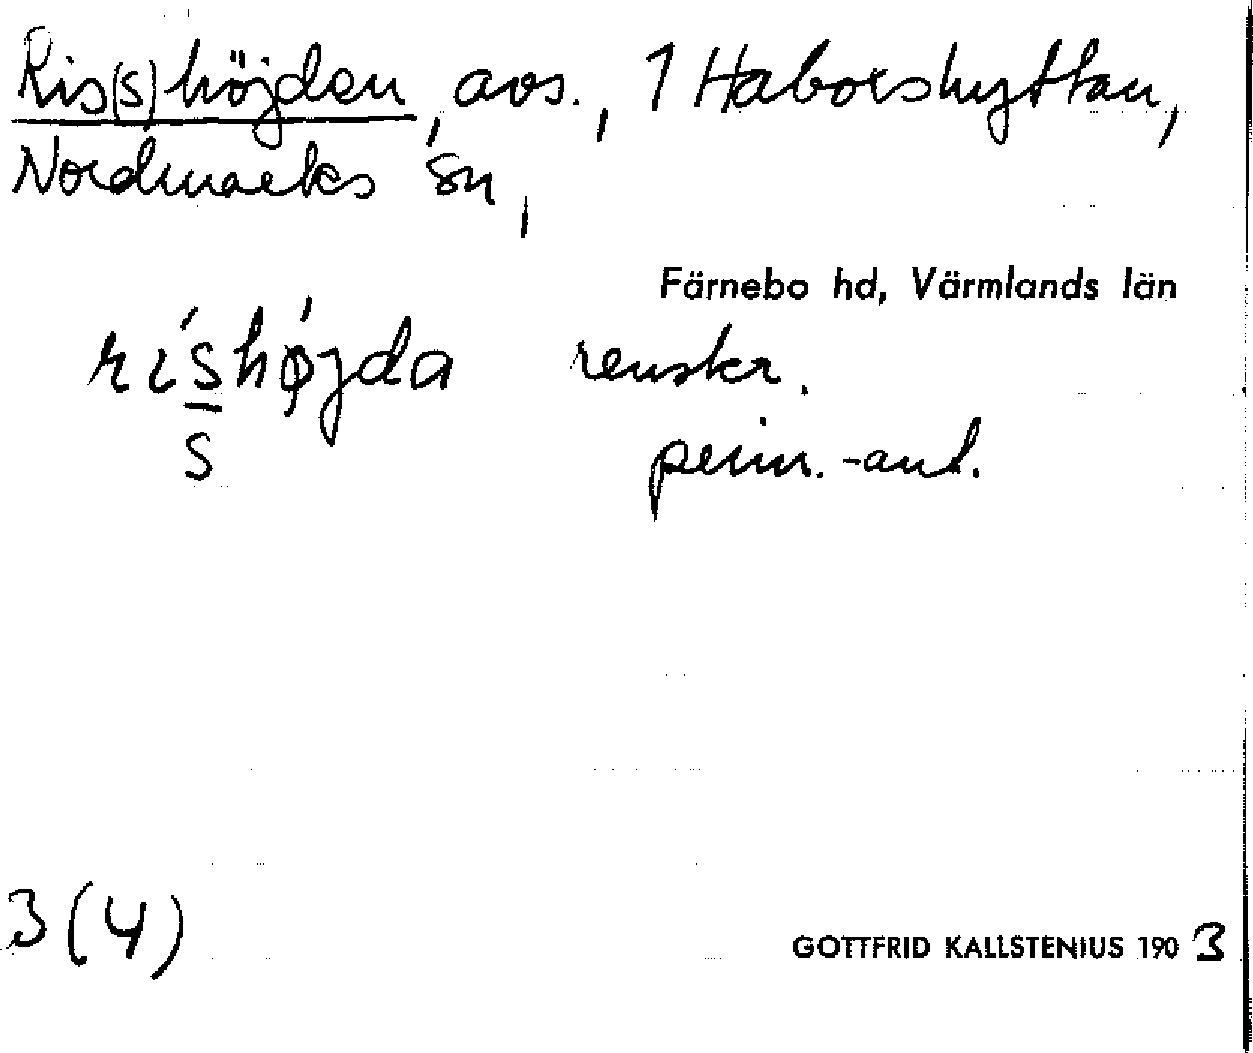 Ris(s)höjden, avs., 1 Haborshyttan,
Nordmarks sn,
Färnebo hd, Värmlands län
ríshǿjda renskr.
s penn.-ant.
3(4)
GOTTFRID KALLSTENIUS 1903